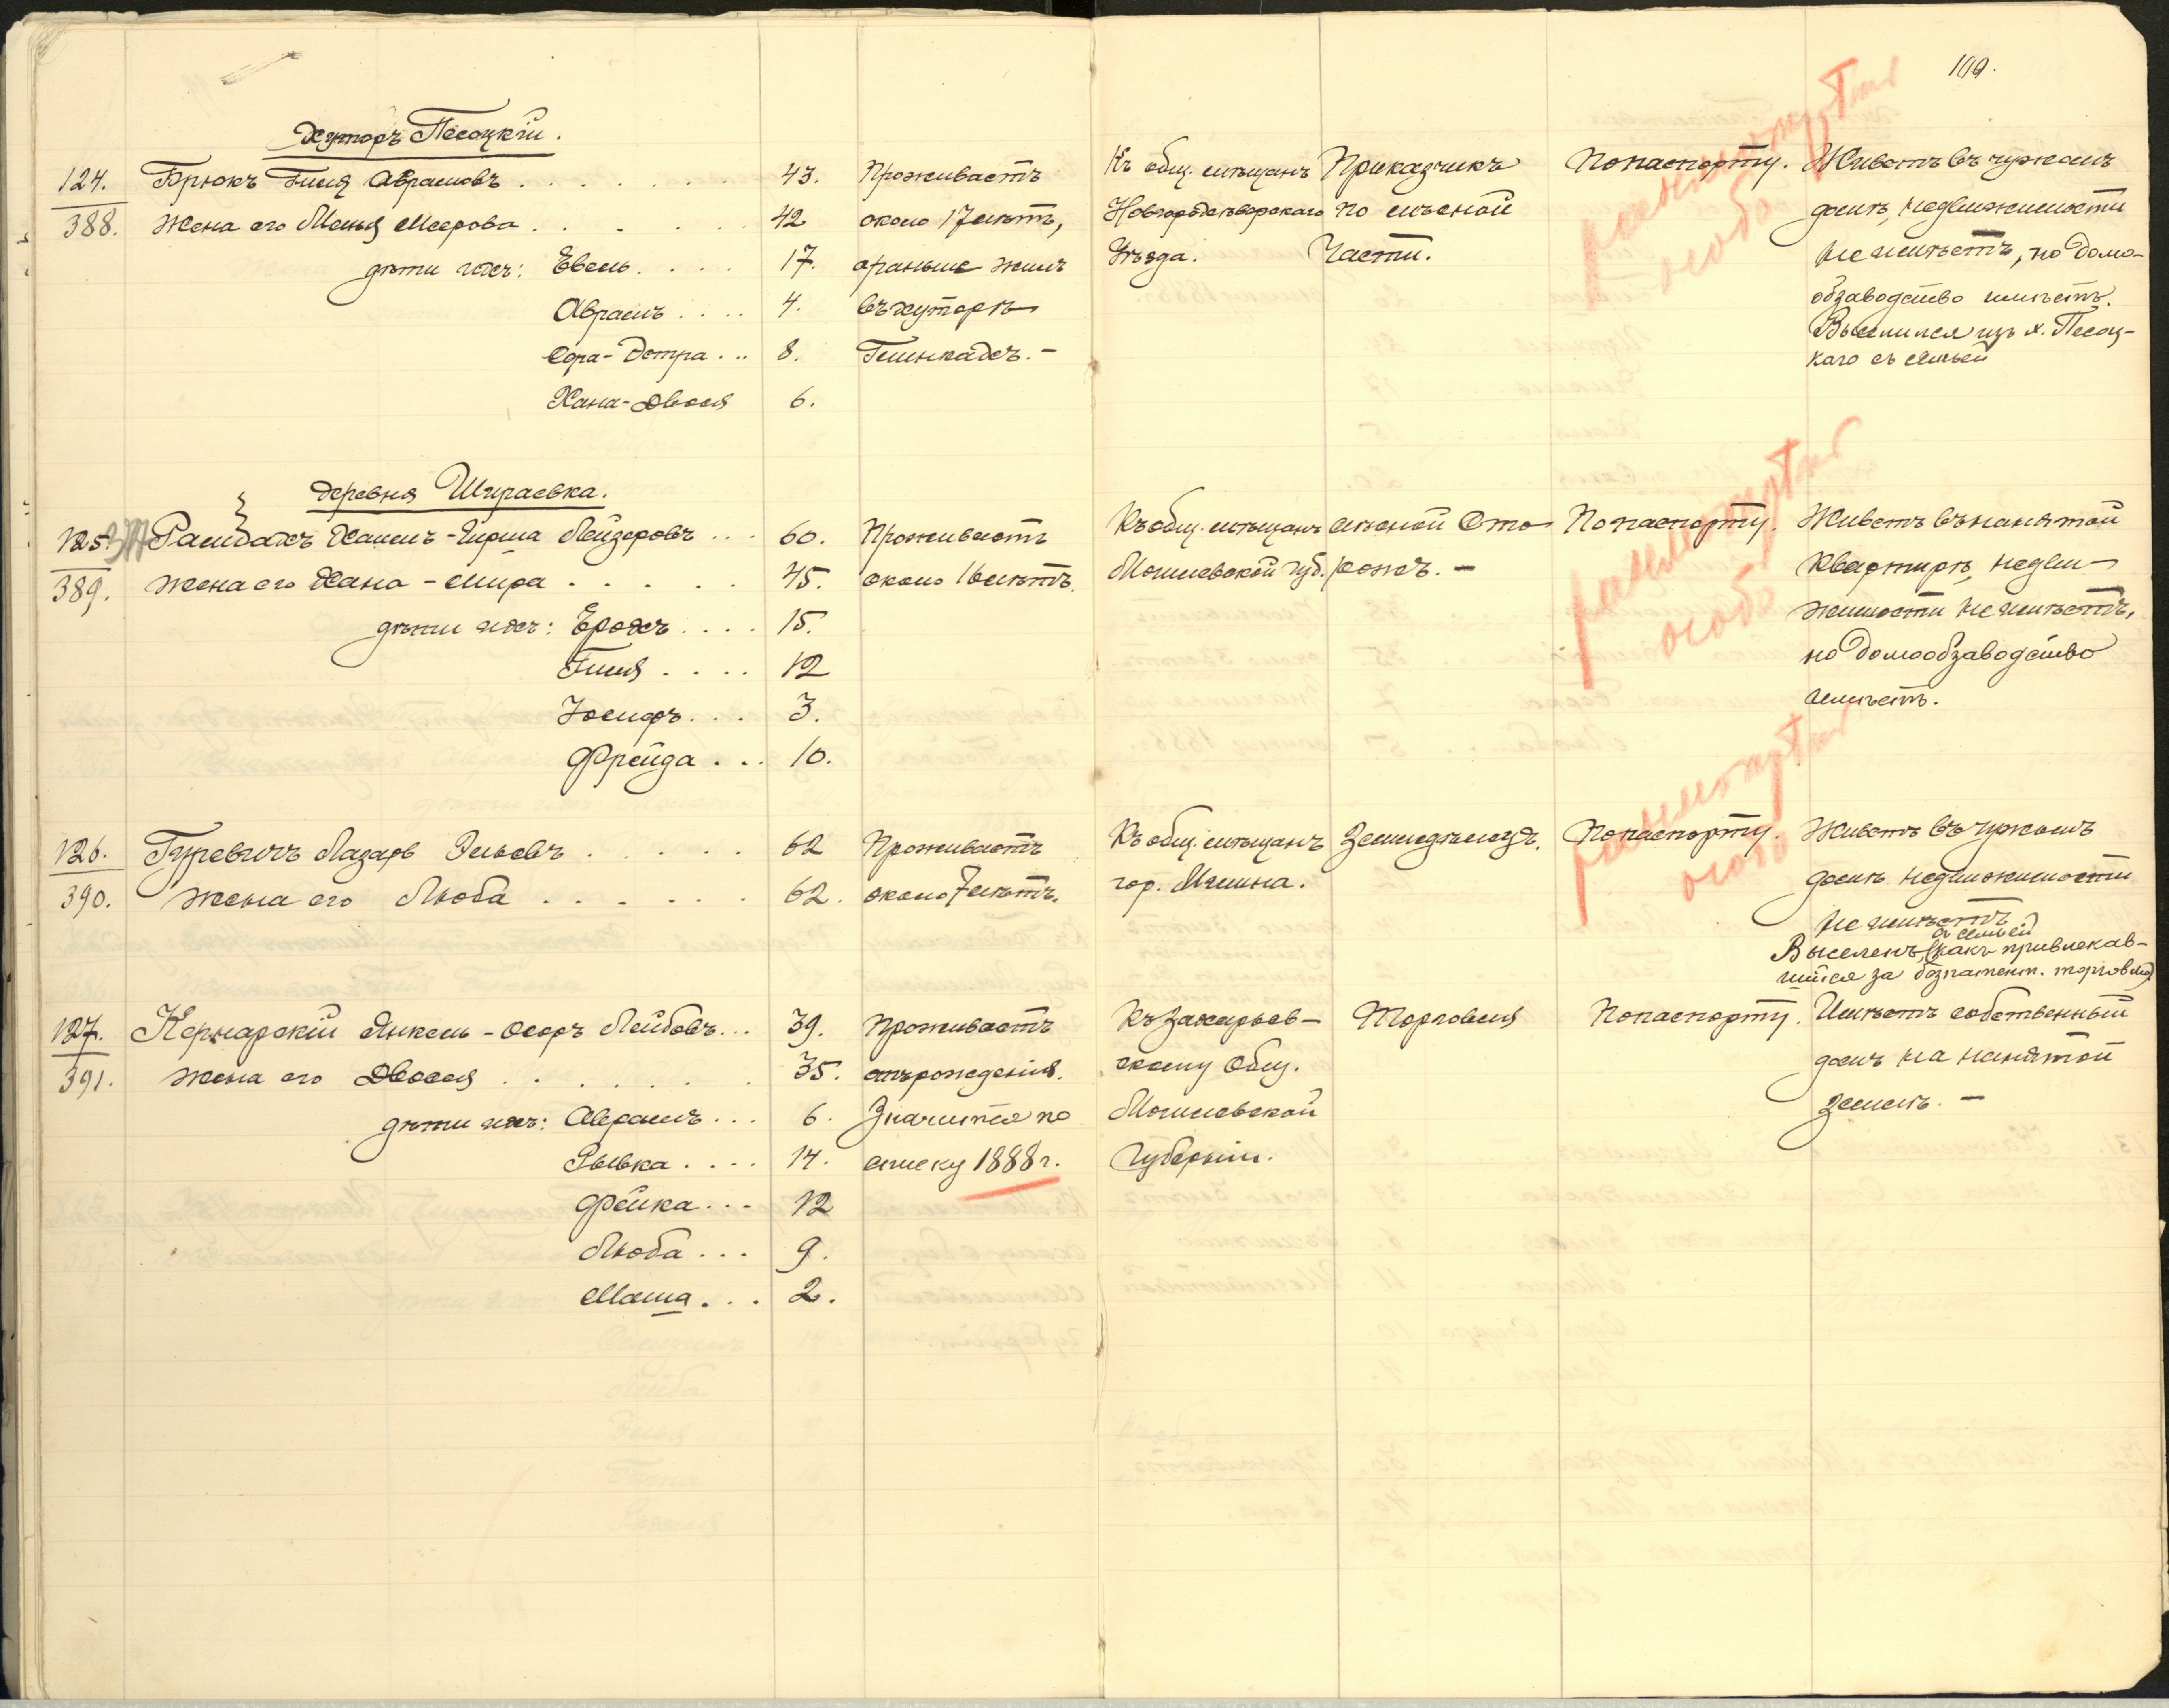 100.
Хуторъ Песоцкій.
124. Брюкъ Гиля Абрамовъ . . . 43. Проживаетъ Къ общ. мѣщанъ Приказчикъ По паспорту. Живетъ въ чужомъ
388. жена его Менья Меерова . . . 42 около 17 лѣтъ, Новгородсѣверскаго по лѣсной домѣ, недвижимости
дѣти ихъ: Евель . . . 17. а раньше жилъ Уѣзда. Части. не имѣетъ, но домо-
Абрамъ . . . 4. въ хуторѣ обзаводство имѣетъ.
Сора-Двтра . . . 8. Выселился изъ х. Песоц-
каго съ семьей
Хана-Двося 6.
рапортъ
особо
деревня Шираевка.
125. Хаимъ-Гирша Лейзеровъ . . . 60. Проживаетъ Къ общ. мѣщанъ лѣсной Сто- По паспорту. Живетъ въ нанятой
389. жена его Хана-Мира . . . 45. около 16 лѣтъ. Могилевской губ. рожъ. - квартирѣ, недви-
дѣти ихъ: Ерохъ . . . 15. жимости не имѣетъ,
Гиля . . . 12 но домообзаводство
Іосифъ . . . 3. имѣетъ.
Фрейда . . . 10.
особо
126. Гуревичъ Лазарь Эльевъ . . . 62 Проживаетъ Къ общ. мѣщанъ Земледѣлецъ. По паспорту. Живетъ въ чужомъ
390. жена его Люба . . . 62. около 7 лѣтъ. гор. Мглина. домѣ недвижимости
не имѣетъ
съ семьей
Выселенъ, (какъ привлекав-
шійся за безпатент. торговлю)
особо
127. Янкель-Осоръ Лейбовъ . . . 39. Проживаетъ Къ Захарьев- Торговля По паспорту. Имѣетъ собственный
391. жена его Двосся . . . 35. отъ рожденія. скому Общ. домъ на нанятой
дѣти ихъ: Абрамъ . . . 6. Значится по Могилевской землѣ. -
Рывка . . . 14. списку 1888 г. Губерніи.
Фейка . . . 12
Люба . . . 9.
Маша . . . 2.